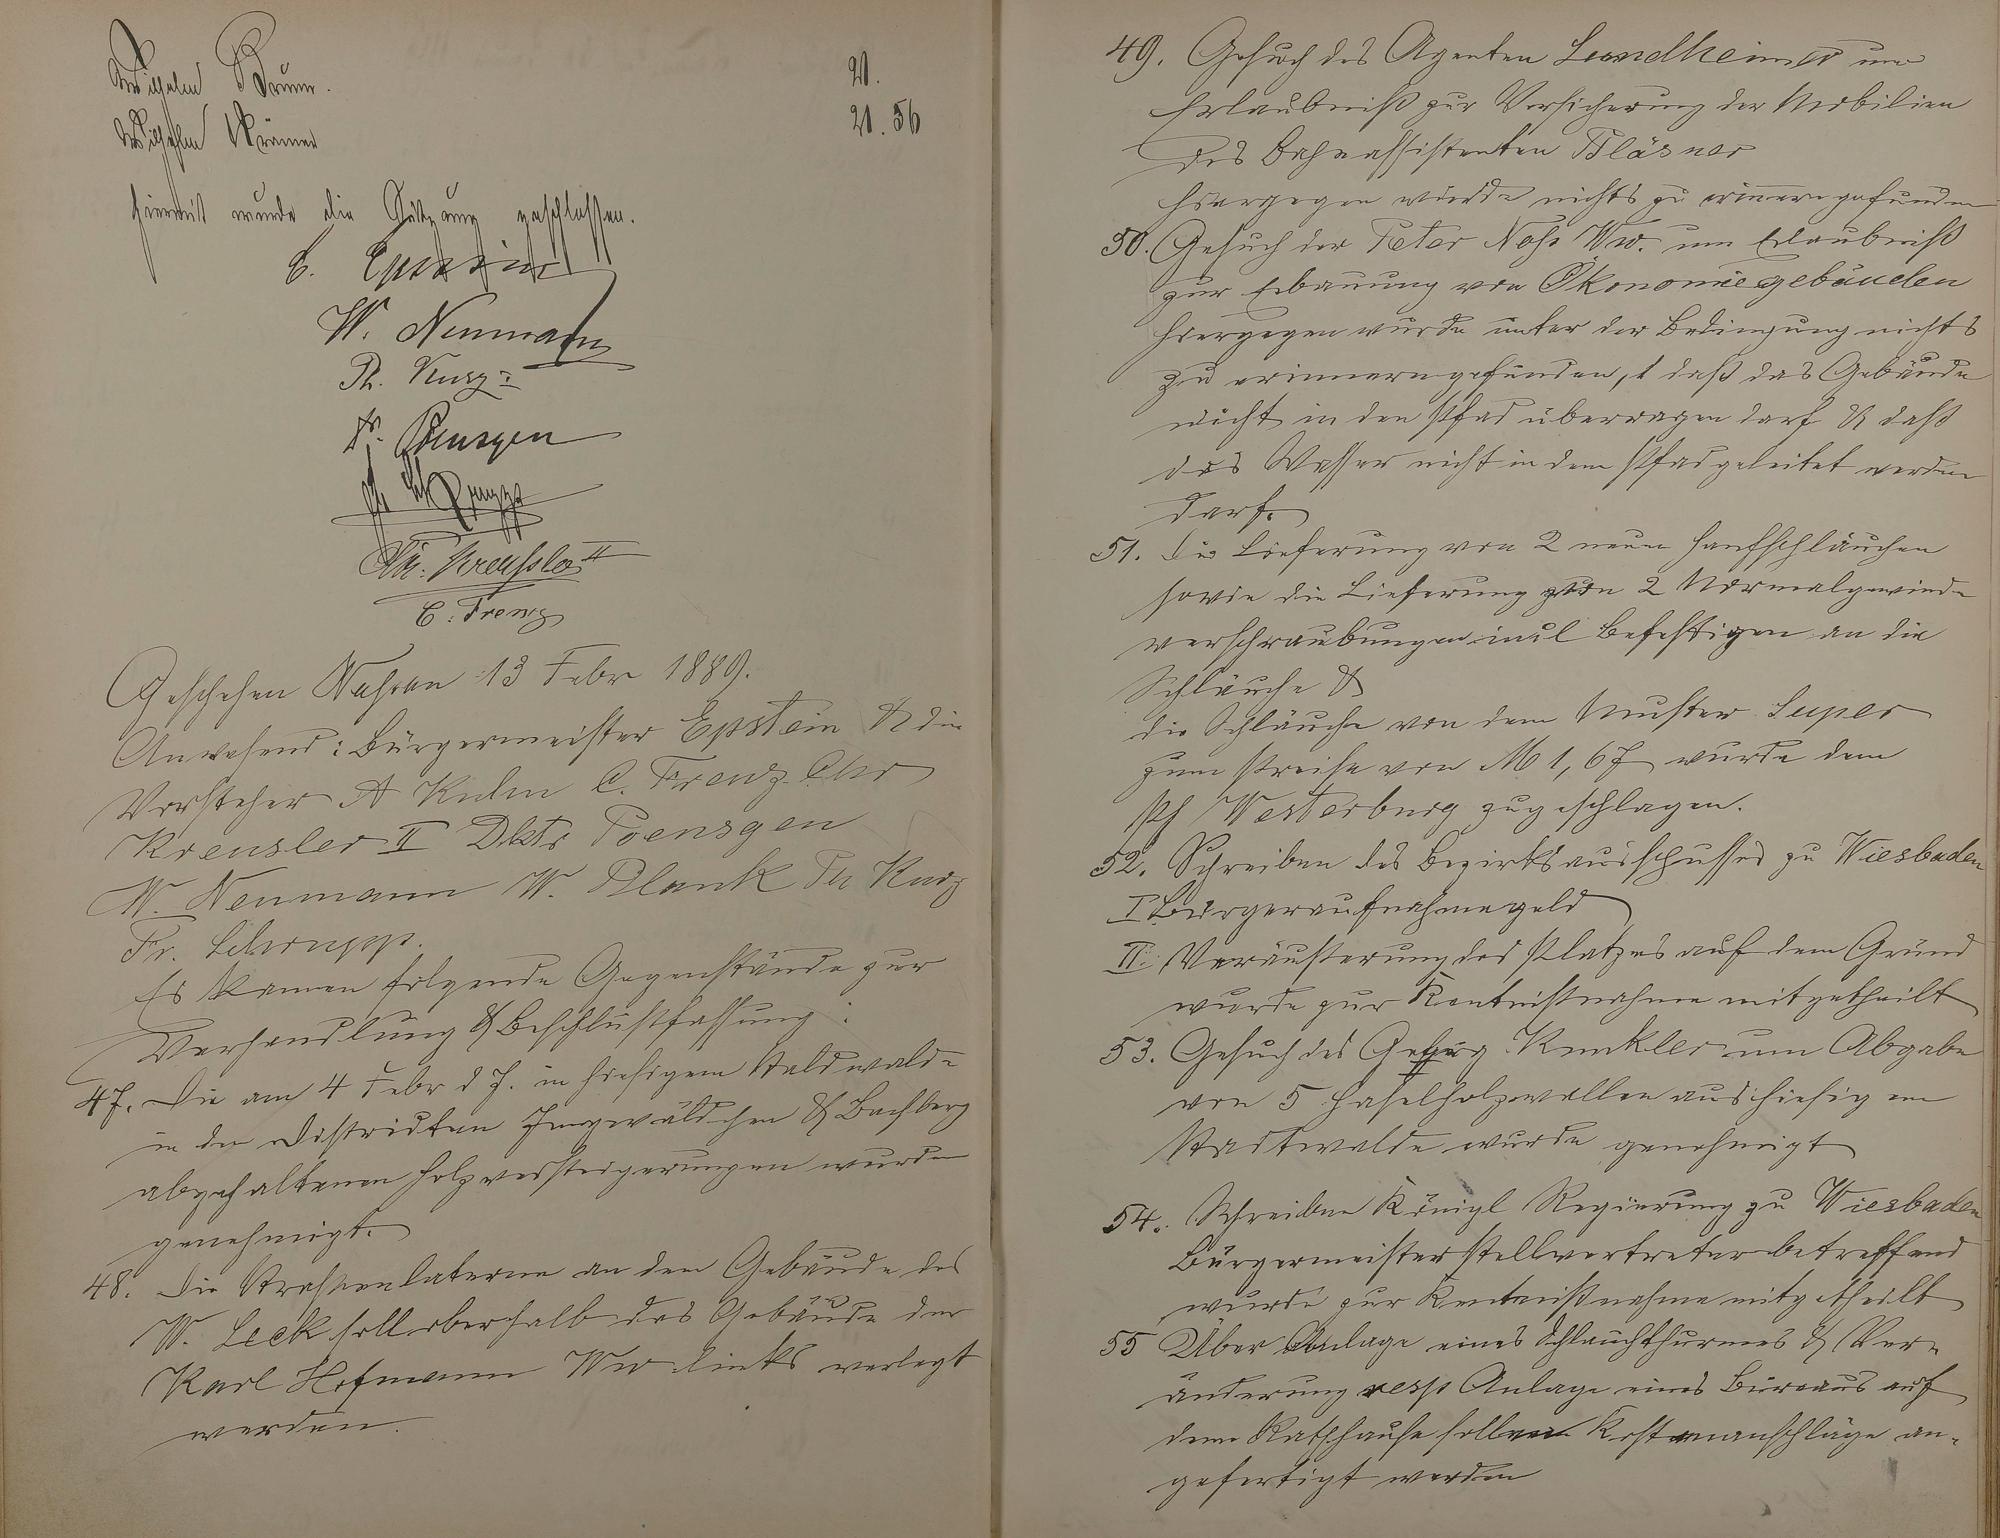 Wilhelm Brunn. 20.
Wilhelm Krämer 21.56
Hiermit wurde die Sitzung geschlossen.
C. Epstein
W. Neumann
Ph. Kurz
Dr. Poensgen
Fr. Schrupp
Chr. Kreusler II
C. Frenz
Geschehen Nassau 13 Febr 1889.
Anwesend: Bürgermeister Epstein & die
Vorsteher A Kulm C. Frenz Chr
Kreusler II Dktr Poensgen
W. Neumann W. Plank Ph Kurz
Fr. Schrupp.
Es kamen folgende Gegenstände zur
Verhandlung & Beschlußfassung:
47. Die am 4 Febr d J. in hiesigem Stadtwalde
in den Distrikten Jungwäldchen & Bachberg
abgehaltenen Holzversteigerungen wurde
genehmigt.
48. Die Straßenlaterne an dem Gebäude des
W. Leck soll oberhalb des Gebäude der
Karl Hofmann Ww links verlegt
werden.
49. Gesuch des Agenten Landheimer um
Erlaubniß zur Versicherung der Mobilien
des Bahnassistenten Bläsner
hiergegen wurde nichts zu erinnern gefunden
50. Gesuch der Peter Noss Ww. um Erlaubniß
zur Erbauung von Ökonomiegebäuden
hiergegen wurde unter der Bedingung nichts
zu erinnern gefunden, daß das Gebäude
nicht in den Pfad überragen darf & daß
das Wasser nicht in dem Pfad geleitet werden
darf.
51. Die Lieferung von 2 neuen Hanfschläuchen
sowie die Lieferung von 2 Normalgewinde
verschraubungen incl Befestigen an die
Schläuche &
die Schläuche von dem Muster Super
zum Preise von M 1,67 wurde dem
Ph Westerburg zugeschlagen.
52. Schreiben des Bezirksausschusses zu Wiesbaden
I Bürgeraufnahmegeld
II. Veräußerung des Platzes auf dem Grund
wurde zur Kentnißnahme mitgetheilt
53. Gesuch des Georg Kunkler um Abgabe
von 5 Haselholzwellen aus hiesigem
Stadtwalde wurde genehmigt
54. Schreiben Königl Regierung zu Wiesbaden
Bürgermeisterstellvertreter betreffend
wurde zur Kentnißnahme mitgetheilt
55 Über Anlage eines Schlauchthurmes & Ver-
änderung resp Anlage eines Büreaus auf
dem Rathhause sollen Kostenanschläge an-
gefertigt werden